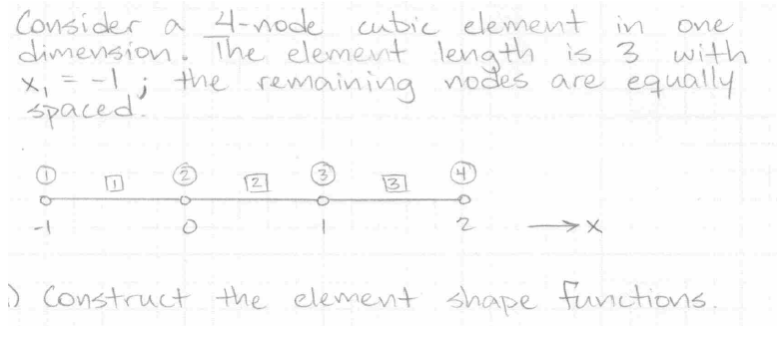 Consider a 4-node cubic element in one
dimension. The element length is 3 with
x₁ = -1; the remaining nodes are equally
spaced.
① 1 ② 2 ③ 3 ④
-1 0 1 2 → x
) Construct the element shape functions.